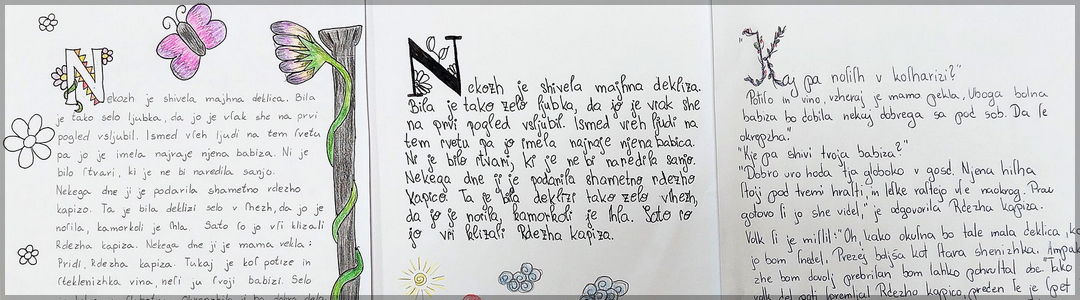 Nekozh je shivela majhna deklica. Bila
je tako selo ljubka, da jo je vſak she na prvi
pogled vsljubil. Ismed vſeh ljudi na tem ſvetu
pa jo je imela najraje njena babiza. Ni je
bilo ſtvari, ki je ne bi naredila sanjo.
Nekega dne ji je podarila shametno rdezho
kapizo. Ta je bila deklizi selo v ſhezh, da jo je
noſila, kamorkoli je ſhla. Sato ſo jo vſi klizali
Rdezha kapiza. Nekega dne ji je mama rekla:
Pridi, Rdezha kapiza. Tukaj je koſ potize in
ſteklenizhka vina, neſi ju ſvoji babizi. Selo
Nekozh je shivela majhna dekliza.
Bila je tako zelo ljubka, da jo je vſak she
na prvi pogled vsljubil. Ismed vſeh ljudi na
tem ſvetu pa jo je imela najraje njena babica.
Ni je bilo ſtvari, ki je ne bi naredila sanjo.
Nekega dne ji je podarila shametno rdezho
kapico. Ta je bila deklizi tako zelo vſhezh,
da jo je noſila, kamorkoli je ſhla. Sato ſo
jo vſi klizali Rdezha kapiza.
"Kaj pa noſiſh v koſharizi?"
"Potizo in vino, vzheraj je mama pekla. Uboga bolna
babiza bo dobila nekaj dobrega sa pod sob. Da ſe
okrepzha."
"Kje pa shivi tvoja babiza?"
"Dobro uro hoda tja globoko v gosd. Njena hiſha
ſtoji pod tremi hraſti, in leſke raſtejo vſe naokrog. Prav
gotovo ſi jo she videl," je odgovorila Rdezha kapiza.
Volk ſi je miſlil: "Oh, kako okuſna bo tale mala deklica,
jo bom ſnedel. Prezej boljsa kot ſtara shenizhka. Ampak
zhe bom dovolj prebriſan bom lahko pohruſtal obe. Tako
volk del poti ſpremljal Rdezho kapico, preden ſe je ſpet